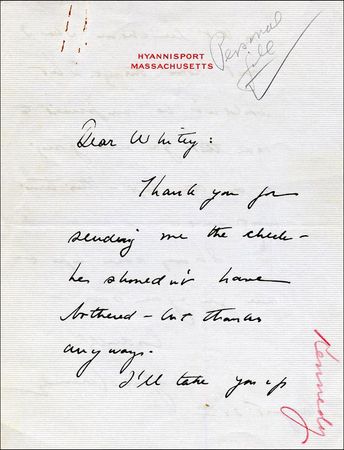 HYANNISPORT
MASSACHUSETTS
Personal
file
Dear Whitey:
Thank you for
sending me the check -
he shouldn't have
bothered - but thanks
anyways.
I'll take you up
Kennedy